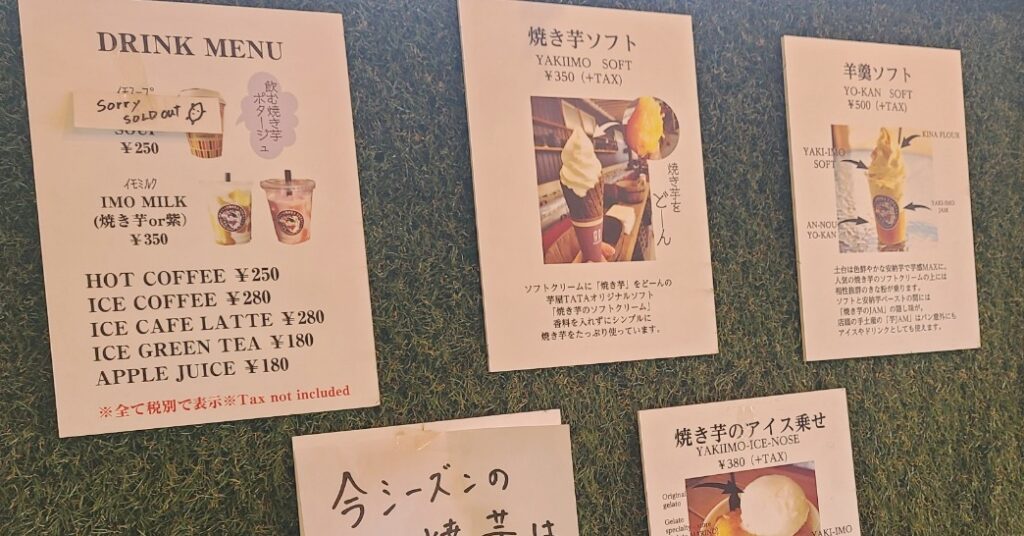 DRINK MENU
Sorry
SOLD OUT
SOUP
¥250
飲む焼き芋
ポタージュ
イモミルク
IMO MILK
(焼き芋or紫)
¥350
HOT COFFEE ¥250
ICE COFFEE ¥280
ICE CAFE LATTE ¥280
ICE GREEN TEA ¥180
APPLE JUICE ¥180
※全て税別で表示※Tax not included
焼き芋ソフト
YAKIIMO SOFT
¥350 (+TAX)
焼き芋を
どーん
ソフトクリームに「焼き芋」をどーんの
芋屋TATAオリジナルソフト
「焼き芋のソフトクリーム」
香料を入れずにシンプルに
焼き芋をたっぷり使っています。
羊羹ソフト
YO-KAN SOFT
¥500 (+TAX)
KINA FLOUR
YAKI-IMO
SOFT
YAKI-IMO
JAM
AN-NOU
YO-KAN
土台は色鮮やかな安納芋で芋感MAXに。
人気の焼き芋のソフトクリームの上には
相性抜群のきな粉が乗ります。
ソフトと安納芋ペーストの間には
「焼き芋のJAM」の隠し味が。
店頭の手土産の「芋JAM」はパン意外にも
アイスやドリンクとしても使えます。
今シーズンの
焼芋は
焼き芋のアイス乗せ
YAKIIMO-ICE-NOSE
¥380 (+TAX)
Original
gelato
Gelato
specialty store
YAKI-IMO